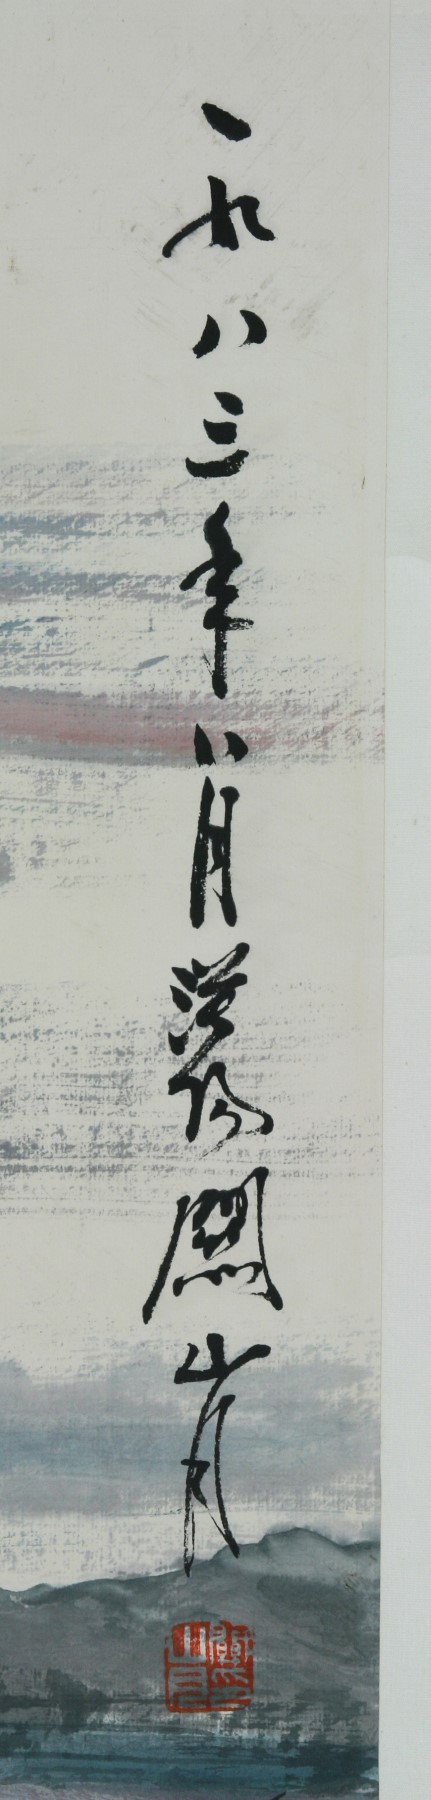 一九八三年八月漠陽關山月